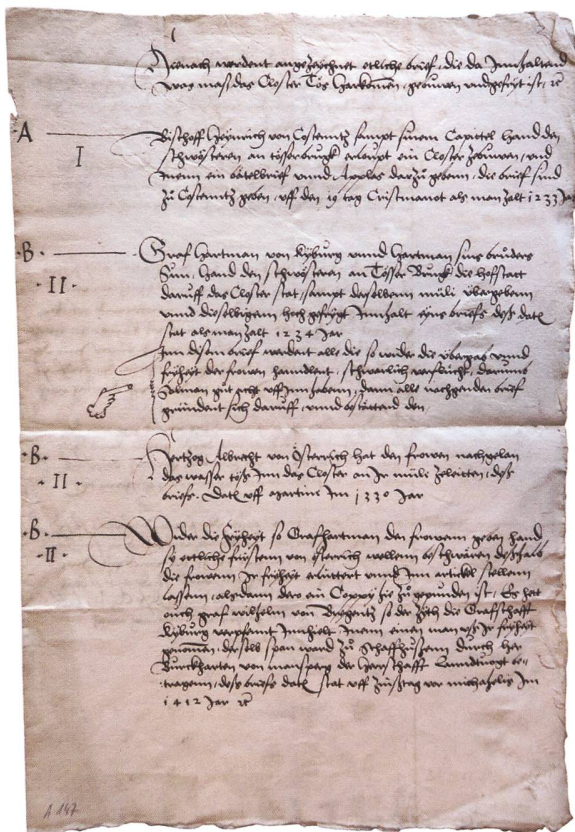 Hernach werdent angezeychnet ettliche brief, die da Innhaltend
was mass das Closter Tös harkomen, gebuwen vnd gefryt ist, rc
A
I
Bischoff Heinrich von Costentz sampt sinem Capittel hand den
schwösteren an Tösserbrugk erloupt ein Closter zebuwen, vnd
Inen ein batelbrief vnnd Applas darzů geben, die brief sind
zů Costentz geben, vff den 19 tag Cristmonot als man zalt 1233 Jar
·B·
·II·
Graf Hartman von Kyburg vnnd Hartman sins brůders
Sun, hand den schwösteren an Tösser Brugk die hofstatt
daruff das Closter stat, sampt derselbenn müli übergebenn
vnnd dieselbigenn hoch gefrygt Innhalt eyns briefs dess dat
stat als man zalt 1234 Jar
Inn disem brief werdent alle die so wider die übergab vnnd
fryheit der frowen handlent, schwarlich verflůcht, darumb
Sol man gůt acht vff Inn haben, dann alle nachgenden brief
gründent sich daruff, vnnd bestättend den
·B·
·II·
Hertzog Albrecht von Österrich hat den frowen nachgelan
das wasser töss Inn das Closter an Ir müli zeleitten, dess
briefs dat vff martini Im 1330 Jar
·B·
·II·
Wider die fryheyt so Graf hartman den frowenn geben hand
sy ettliche fürsten von österich wellenn beschwären desshalb
die frowenn Ir fryheit erlüttert vnnd Inn artickel stellenn
lassenn, als dann der ein Coppy hie zů gepunden ist, Es hat
ouch graf wilhelm von Bregentz so der zyth die Grafschafft
Kyburg verpfant Innhielt, Inen einen man vss Ir fryheit
genomen, derselb span ward zů Schaffhusenn durch her
Burckharten von mansperg der herschafft Lanndtuogt be-
tragenn, dess briefs dat stat vff Zinstag vor michahelis Im
1412 Jar rc
A 147